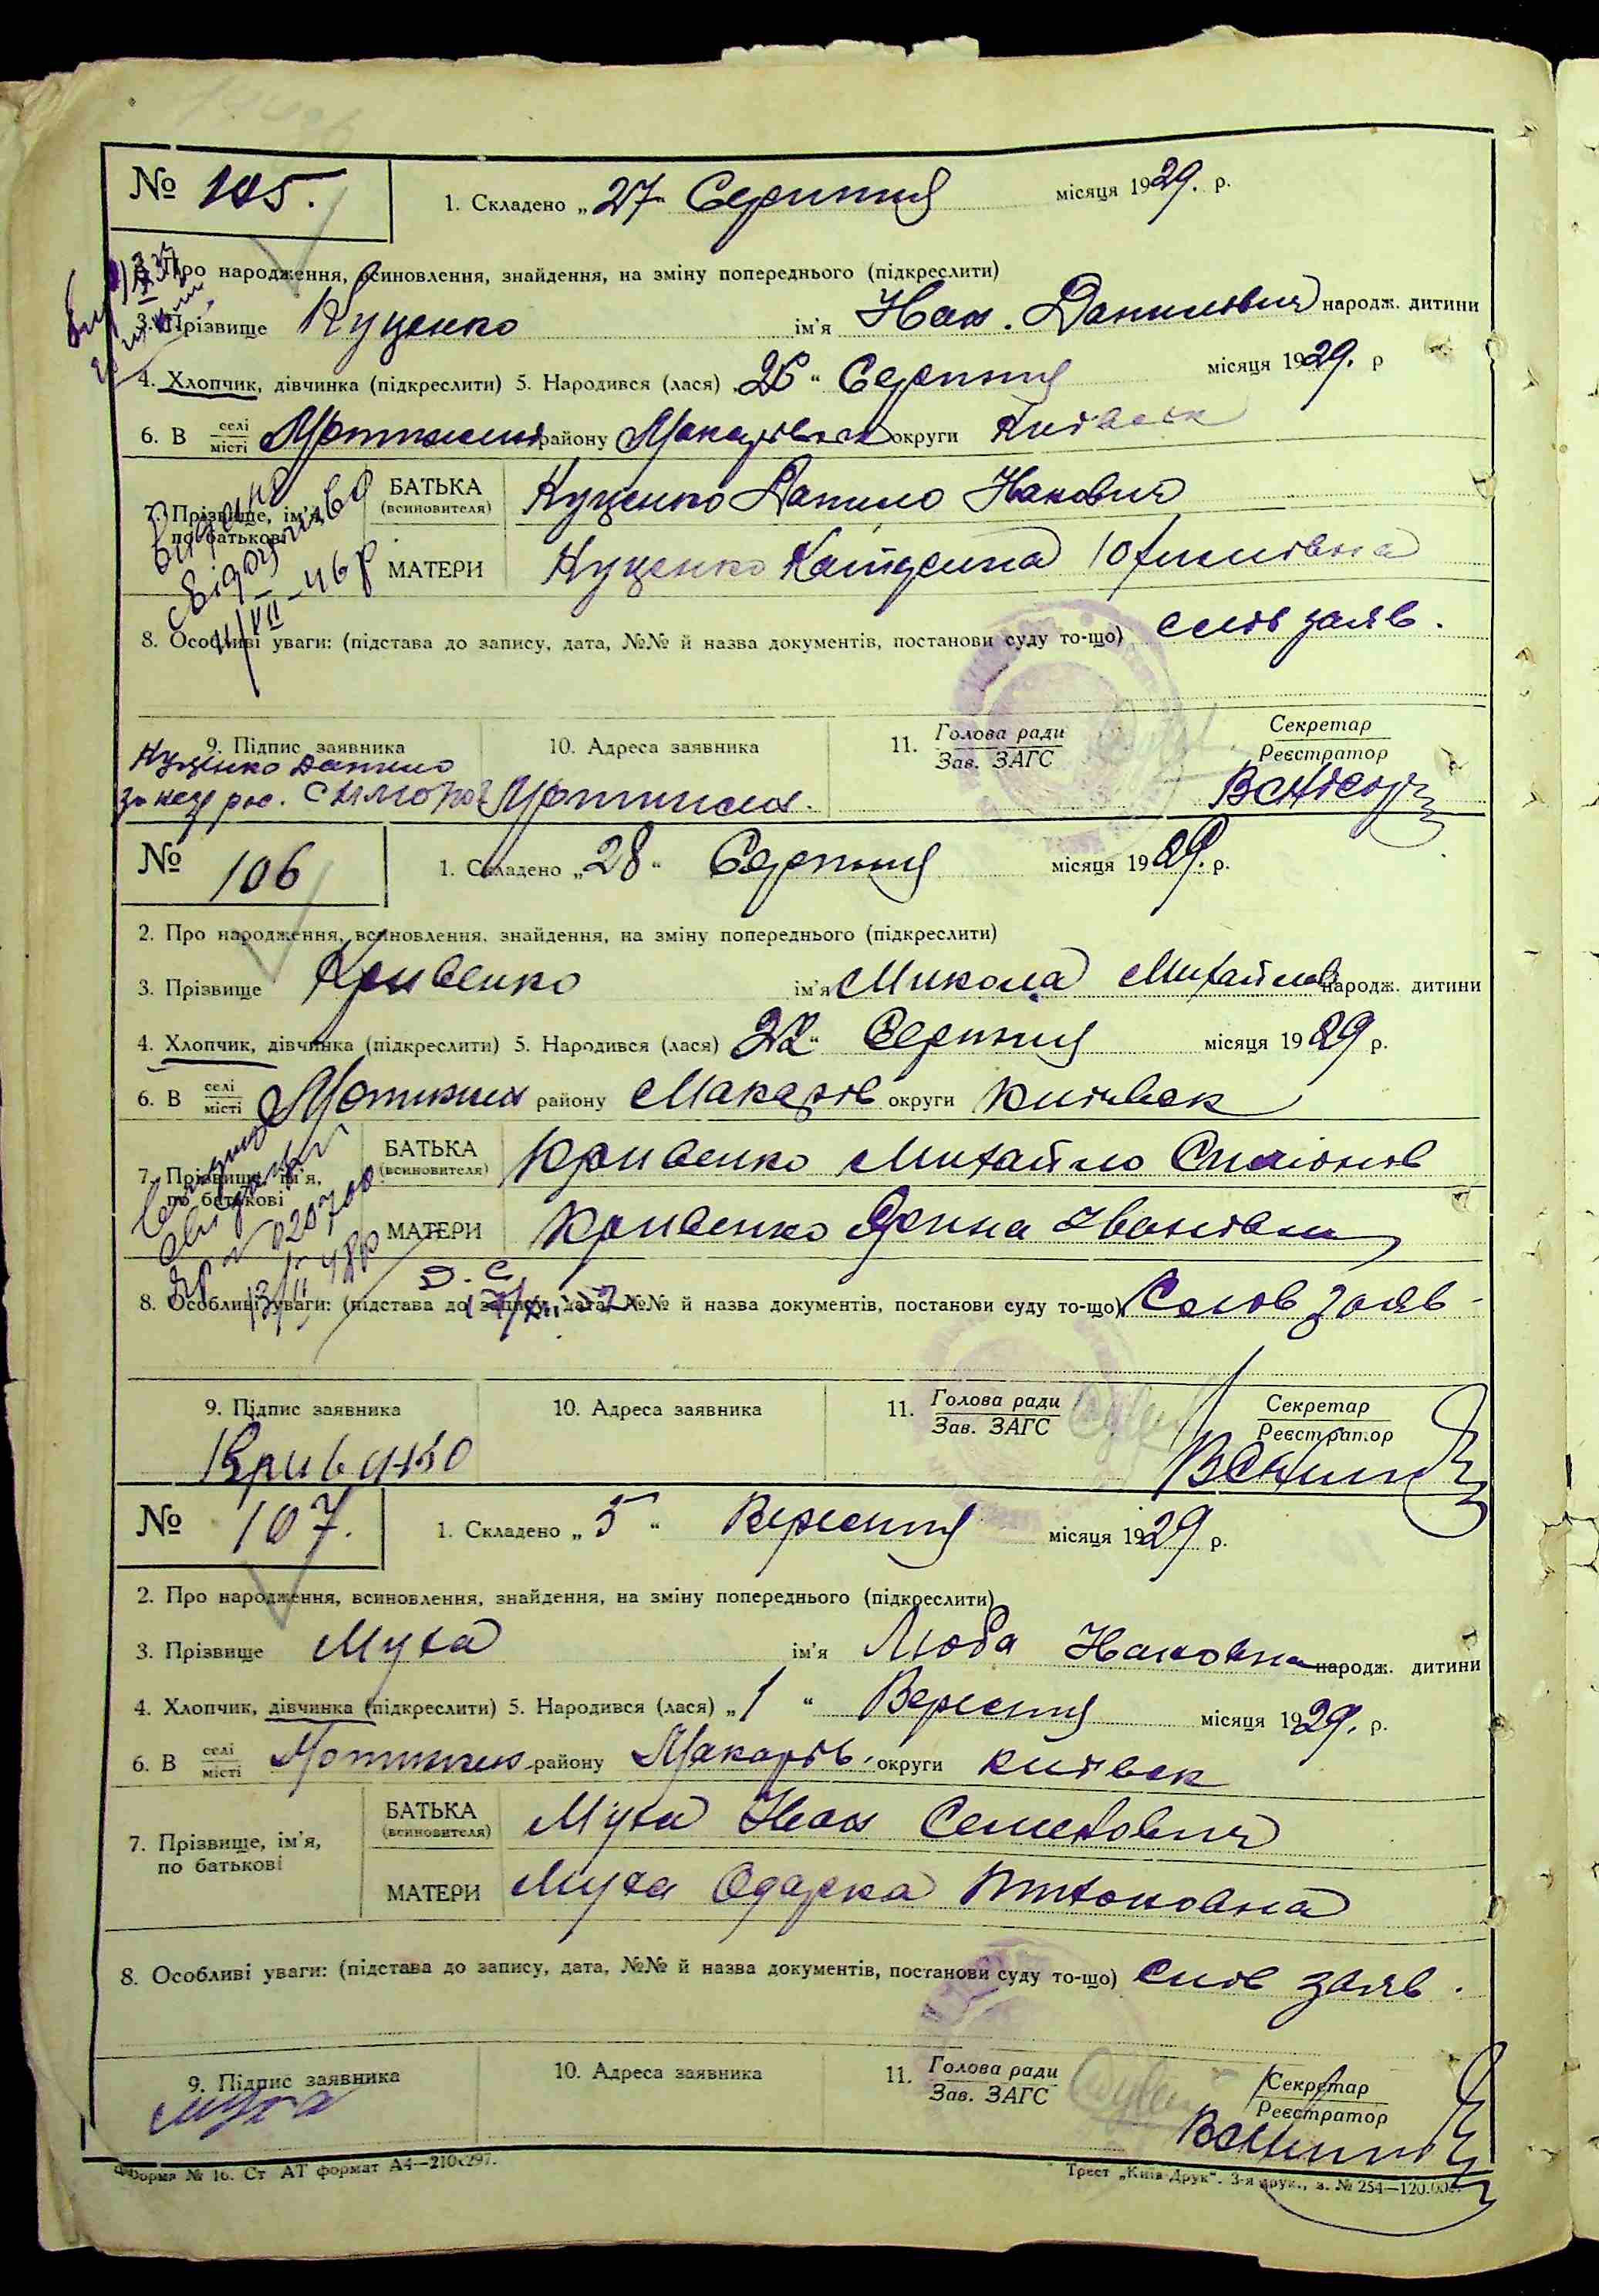 № 105.
1. Складено „27“ Серпння місяця 1929. р.
2. Про народження, всиновлення, знайдення, на зміну попереднього (підкреслити)
3. Прізвище Куценко ім'я Иван. Данилович народж. дитини
4. Хлопчик, дівчинка (підкреслити) 5. Народився (лася) „26“ Серпння місяця 1929. р
6. В селі місті Мотижині району Макарівськ округи Київськ
7. Прізвище, ім'я, по батькові
БАТЬКА (всиновителя) Куценко Данило Иванович
МАТЕРИ Куценко Катерина Юхимівна
Видано
свідоцтво
11/VII-46 р
8. Особливі уваги: (підстава до запису, дата, №№ й назва документів, постанови суду то-що) слов заяв.
9. Підпис заявника 10. Адреса заявника 11. Голова ради Зав. ЗАГС Секретар Реєстратор
Куценко Данило
Мотижин.
№ 106
1. Складено „28“ Серпння місяця 1929. р.
2. Про народження, всиновлення, знайдення, на зміну попереднього (підкреслити)
3. Прізвище Кривенко ім'я Микола Михайлов народж. дитини
4. Хлопчик, дівчинка (підкреслити) 5. Народився (лася) „22“ Серпння місяця 1929 р.
6. В селі місті Мотижин району Макарів округи Київськ
7. Прізвище, ім'я, по батькові
БАТЬКА (всиновителя) Кривенко Михайло
МАТЕРИ Кривенко Ярина Ивановна
020700
13/II 48р
8. Особливі уваги: (підстава до запису, дата, №№ й назва документів, постанови суду то-що) Слов заяв-
9. Підпис заявника 10. Адреса заявника 11. Голова ради Зав. ЗАГС Секретар Реєстратор
Кривенко
№ 107.
1. Складено „5“ Вересння місяця 1929 р.
2. Про народження, всиновлення, знайдення, на зміну попереднього (підкреслити)
3. Прізвище Муха ім'я Люба Ивановна народж. дитини
4. Хлопчик, дівчинка (підкреслити) 5. Народився (лася) „1“ Вересння місяця 1929. р.
6. В селі місті Мотижин району Макарів. округи Київськ
7. Прізвище, ім'я, по батькові
БАТЬКА (всиновителя) Муха Иван Семенович
МАТЕРИ Муха Одарка Антоновна
8. Особливі уваги: (підстава до запису, дата, №№ й назва документів, постанови суду то-що) слов заяв.
9. Підпис заявника 10. Адреса заявника 11. Голова ради Зав. ЗАГС Секретар Реєстратор
Муха
Форма № 16. Ст АТ формат А4—210×297.
Трест „Київ-Друк“. 3-я друк., з. № 254—120.000.